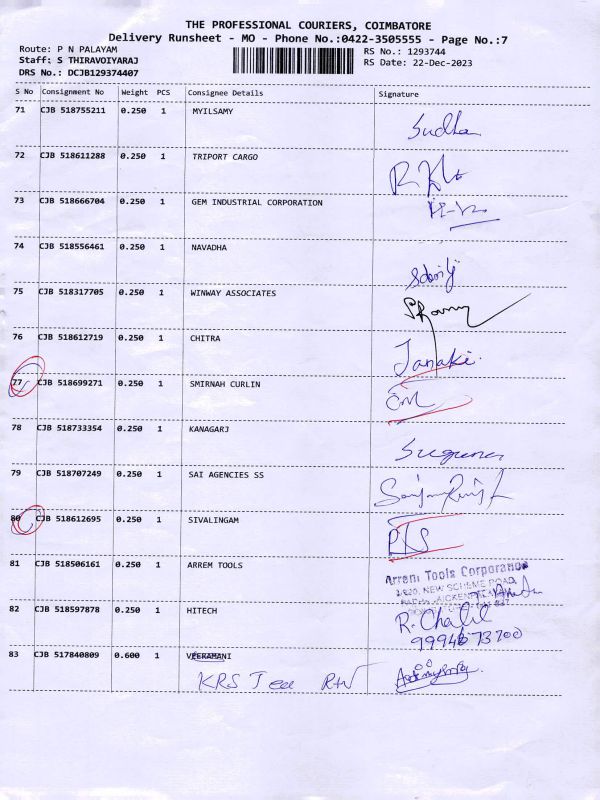 THE PROFESSIONAL COURIERS, COIMBATORE
Delivery Runsheet - MO - Phone No.:0422-3505555 - Page No.:7
Route: P N PALAYAM
RS No.: 1293744
Staff: S THIRAVOIYARAJ
RS Date: 22-Dec-2023
DRS No.: DCJB129374407
S No Consignment No Weight PCS Consignee Details Signature
71 CJB 518755211 0.250 1 MYILSAMY
Sudha
72 CJB 518611288 0.250 1 TRIPORT CARGO
73 CJB 518666704 0.250 1 GEM INDUSTRIAL CORPORATION
74 CJB 518556461 0.250 1 NAVADHA
75 CJB 518317705 0.250 1 WINWAY ASSOCIATES
76 CJB 518612719 0.250 1 CHITRA
Janaki.
77 CJB 518699271 0.250 1 SMIRNAH CURLIN
78 CJB 518733354 0.250 1 KANAGARJ
Suguna
79 CJB 518707249 0.250 1 SAI AGENCIES SS
80 CJB 518612695 0.250 1 SIVALINGAM
81 CJB 518506161 0.250 1 ARREM TOOLS
Arrem Tools Corporation
NEW SCHEME ROAD,
82 CJB 518597878 0.250 1 HITECH
83 CJB 517840809 0.600 1 VEERAMANI
KRS Tea